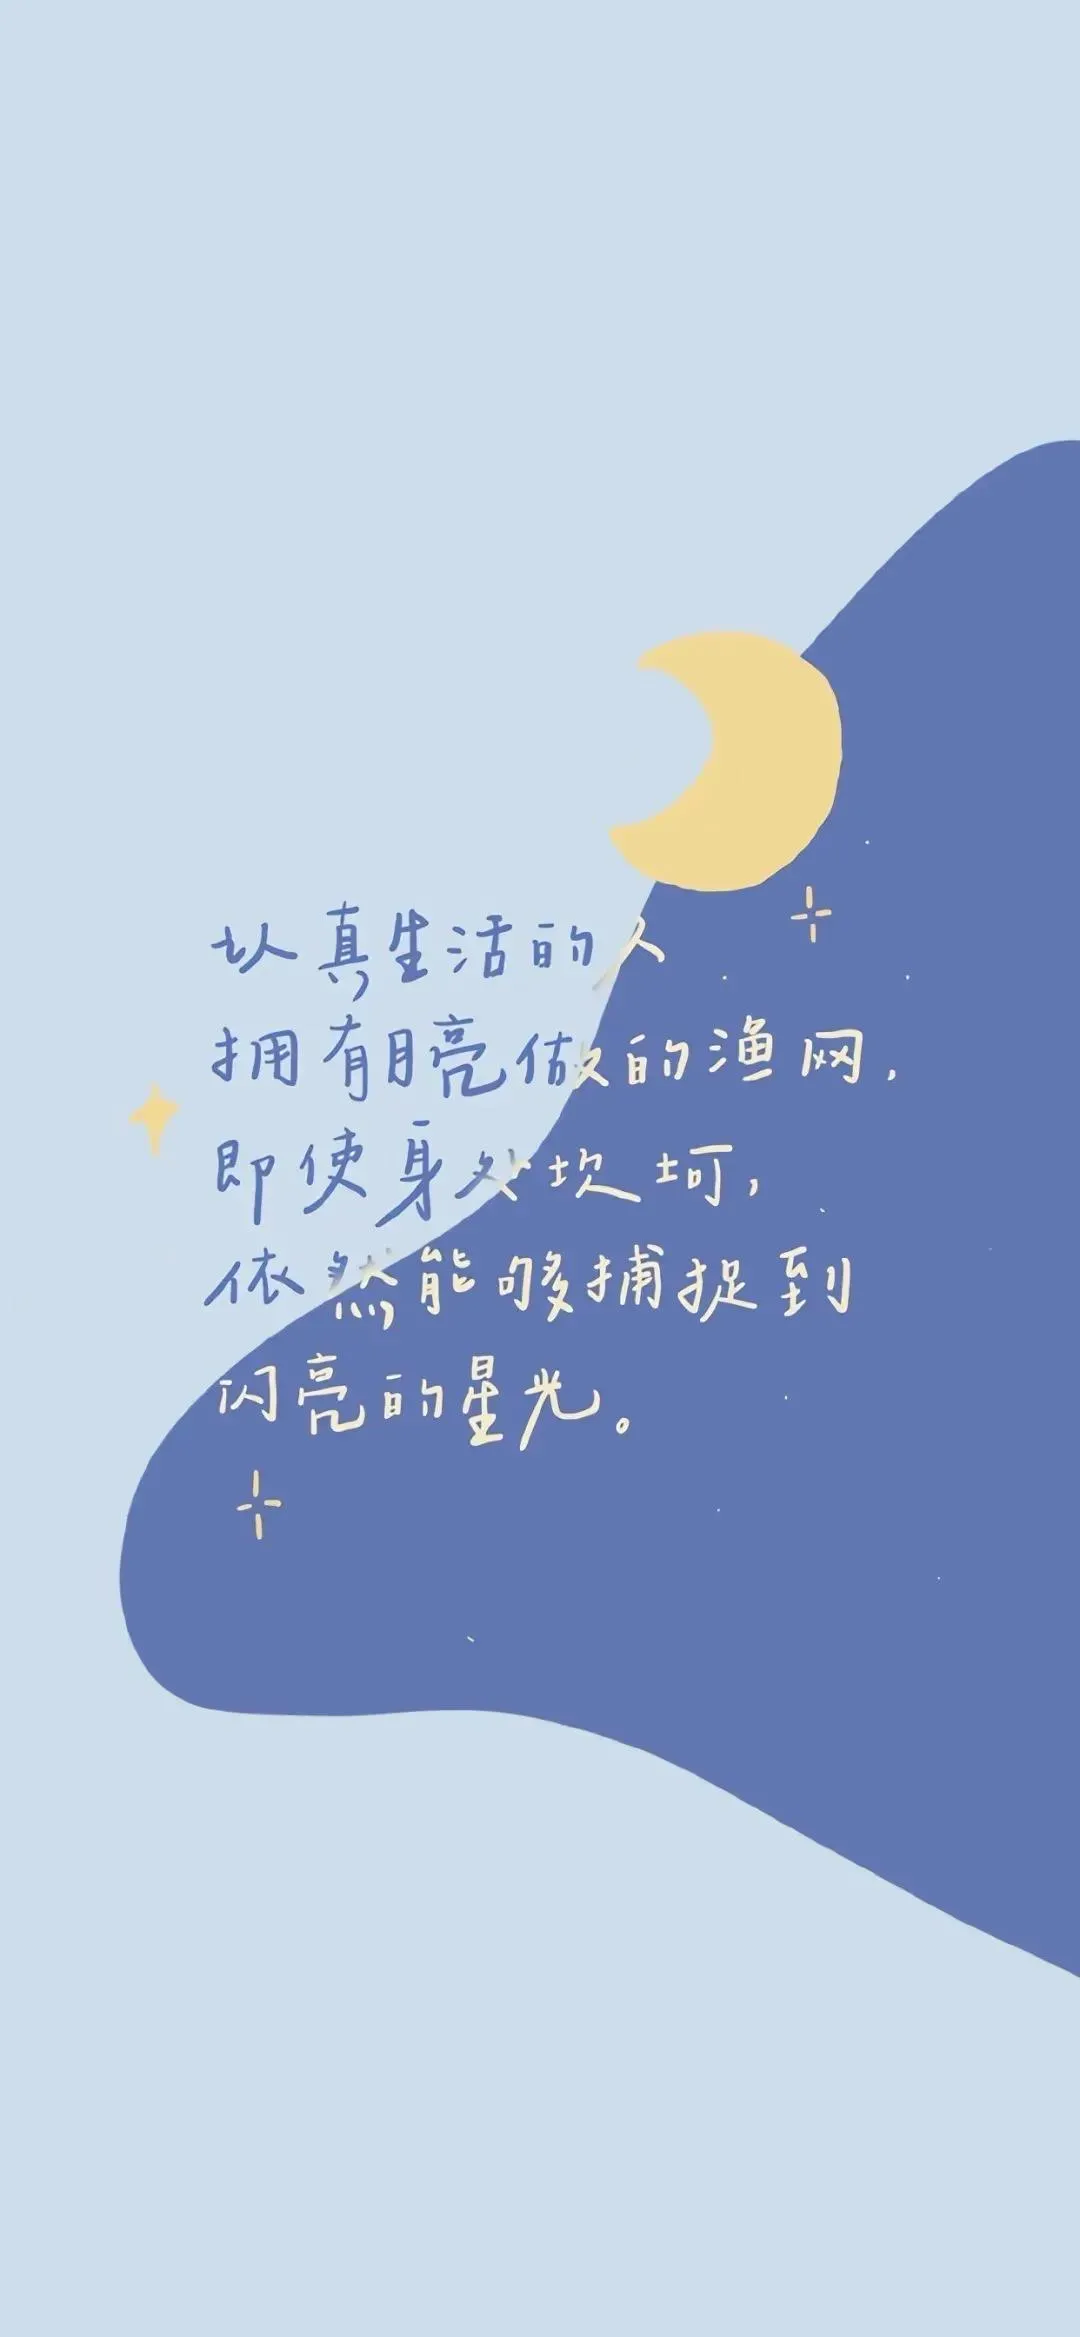 认真生活的人
拥有月亮做的渔网,
即使身处坎坷,
依然能够捕捉到
闪亮的星光。